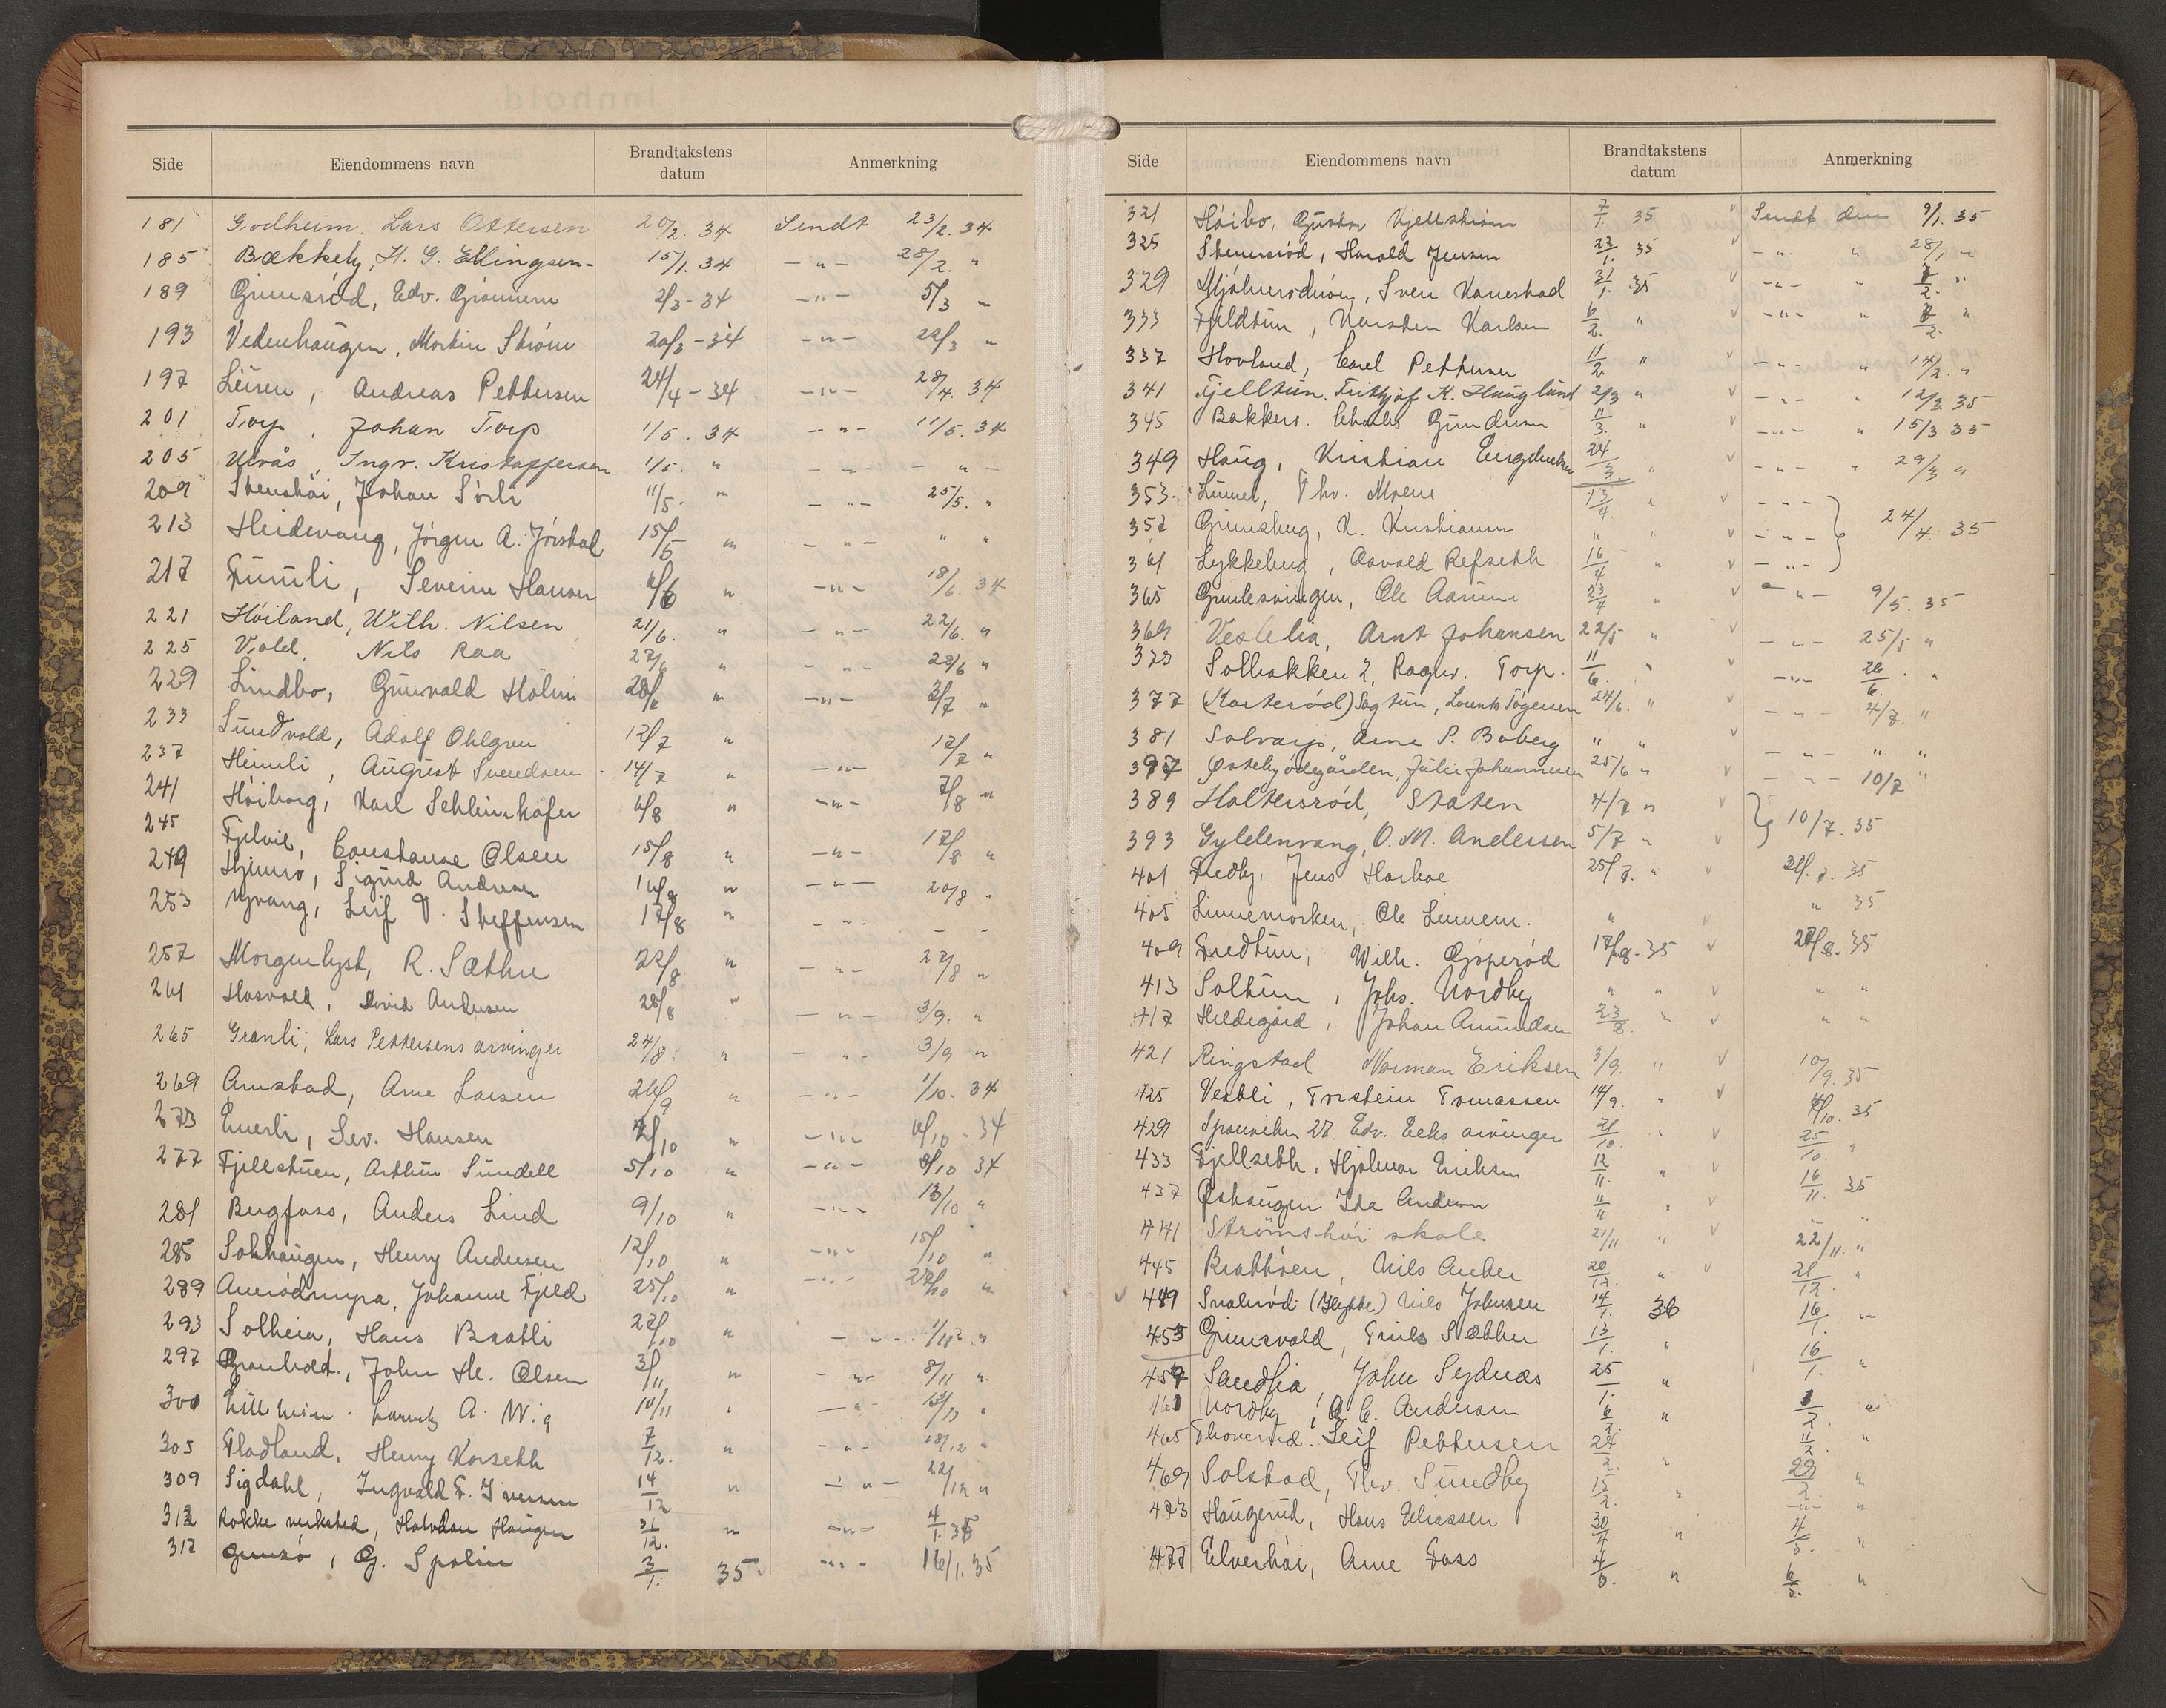 Side Eiendommens navn Brandtakstens datum Anmerkning
181 Godheim, Lars Ottersen 20/2. 34 Sendt 23/2. 34
185 Bækkely, H. G. Ellingsen - 15/1. 34 - " - 28/2. "
189 Grimsrød, Edv. 2/3 - 34 - " - 5/3 "
193 Vedenhaugen, Martin Strøm 20/3 - 34 - " - 22/3 "
197 Andreas Pettersen 24/4 - 34 - " - 28/4. 34
201 Torp, Johan Torp 1/5. 34 - " - 11/5. 34
205 Ulvås, Ingv. Kristoffersen 1/5. " - " - - " -
209 Stenshøi, Johan Sørli 11/5. " - " - 25/5. "
213 Heidevang, Jørgen A. Jørstad 15/5 " - " - " "
217 Furuli, Severin Hansen 6/6 " - " - 18/6. 34
221 Høiland, Wilh. Nilsen 21/6. " - " - 22/6. "
225 Vold, Nils Raa 27/6 " - " - 28/6 "
229 Lindbo, Gunvald Holm 28/6 " - " - 3/7 "
233 Sundvold, Adolf Ohlgren 12/7 " 17/7 "
237 Heimli, August Svendsen 14/7 " - " -
241 Høiborg, Karl Schleimhofer 6/8 " - " - 7/8 "
245 Fjelvie, Constanse Olsen 15/8 " - " - 17/8 "
249 Sigurd Andersen 16/8 " - " - 20/8 "
253 Nyvang, Leif V. Steffensen 17/8 " - " - - -
257 Morgenlyst, R. Sæther 22/8 " - " - 27/8 "
261 Hasvold, David Andersen 28/8 " - " - 3/9. "
265 Granli, Lars Pettersens arvinger 24/8. " - " - 3/9 "
269 Arnstad, Arne Larsen 26/9 " - " - 1/10. 34
273 Enerli, Sev. Hansen 2/10 " - " - 6/10 - 34
277 Fjellstuen, Arthur Sundell 5/10 " - " - 8/10 34
281 Bergfoss, Anders Lund 9/10 " - " - 13/10 "
285 Solhaugen, Henry Andersen 12/10 " - " - 15/10 "
289 Amrødmyra, Johanne Fjeld 25/10 " - " - 27/10 "
293 Solheia, Hans Bratli 27/10 " - " - "
297 Granholt, John Hl. Olsen 3/11 " - " - 8/11 "
300 Lillheim. A. Wig 10/11 " - " - 13/11 "
305 Fladland, Henry Korseth 7/12. " - " - 18/12 "
309 Sigdahl, Ingvald F. Iversen 14/12 " - " - 22/12 "
313 Rokke verksted, Halvdan Haugen 31/12. " - " - 4/1. 35
317 G. Spolin 3/1. 35 - " - 16/1. 35
Side Eiendommens navn Brandtakstens datum Anmerkning
321 Høibo, Gustav Kjellstrøm 7/1. 35 " Sendt den 9/1. 35
325 Stensrød, Harald Jensen 23/1. 35 - " - " 28/1 "
329 Mjølnerødmoen, Sven Kanestad 31/1. 35 - " - " 7/2. "
333 Fjeldtun, Karsten Karlsen 6/2. " - " - " 7/2. "
337 Hovland, Carl Pettersen 11/2 " - " - " 14/2. "
341 Fjelltun, Frithjof K. Hauglund 2/3 " - " - " 12/3 35
345 Bakkers. Charles Gundersen 11/3. " - " - " 15/3 35
349 Haug, Kristian 24/3 " - " - " 29/3 "
353 Linnet, Thv. Moene 13/4. " - " -
357 Grimsberg, K. Kristiansen " " - " - 24/4. 35
361 Lykkeberg, Osvald Refseth 16/4 " - " -
365 Ole Aarum 23/4 " - " - 9/5. 35
369 Vestelia, Arnt Johansen 22/5 " - " - 25/5 "
373 Solbakken 2, Ragnv. Torp. 11/6. " - " - 20/6. "
377 (Karterød) Sagtun, Lorents Tøgersen 24/6. " - " - 4/7. "
381 Solvarp, Arne S. Boberg " " - " - " "
397 Østebyødegården, Julie Johannessen 25/6 " - " - 10/7 "
389 Holtersrød, Staten 4/7 "
393 Gyldenvang, O. M. Andersen 5/7 " 10/7. 35
401 Fredby, Jens Harboe 25/7. " 31/7. 35
405 Linnemarken, Ole Linnem. " " 35
409 Fredtun, Wilh. Gjøperød 17/8. 35 27/8. 35
413 Soltun, Johs. Nordby " " " "
417 Hildegård, Johan Amundsen 23/8. " " "
421 Ringstad Norman Eriksen 3/9. " 10/9. 35
425 Vestli, Torstein Tomassen 14/9. " 4/10. 35
429 27. Edv. Eeks arvinger 21/10. " 25/10. "
433 Fjellseth, Hjalmar Eriksen 12/11. " 16/11. 35
437 Østhaugen Ida Andersen 11/11 " " "
441 Strömshøi skole 21/11 " 22/11. "
445 Bråtåen, Nils Anker 20/12. " 21/12. "
449 Snalerød (Hytte) Nils Johnsen 14/1. 36 16/1. "
453 Grimsvold, Truls Sæther 13/1. " 16/1. "
457 Sandlia, John Sydnæs 25/1. "
461 Nordby, A C. Andersen 6/2. " 3/2. "
465 Leif Pettersen 24/2. " 11/2. "
469 Solstad, Thv. Sundby 15/2. " 29/2. "
473 Haugerud, Hans Eliassen 30/4 " 4/5. "
477 Elverhøi, Arne Foss 4/5. " 6/5. "